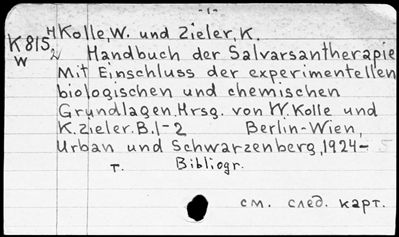 -1-
K815 H Kolle, W. und Zieler, K.
W 2 Handbuch der Salvarsantherapie
Mit Einschluss der experimentellen
biologischen und chemischen
Grundlagen. Hrsg. von W. Kolle und
K. Zieler. B. 1-2 Berlin-Wien,
Urban und Schwarzenberg, 1924-5
т. Bibliogr.
см. след. карт.